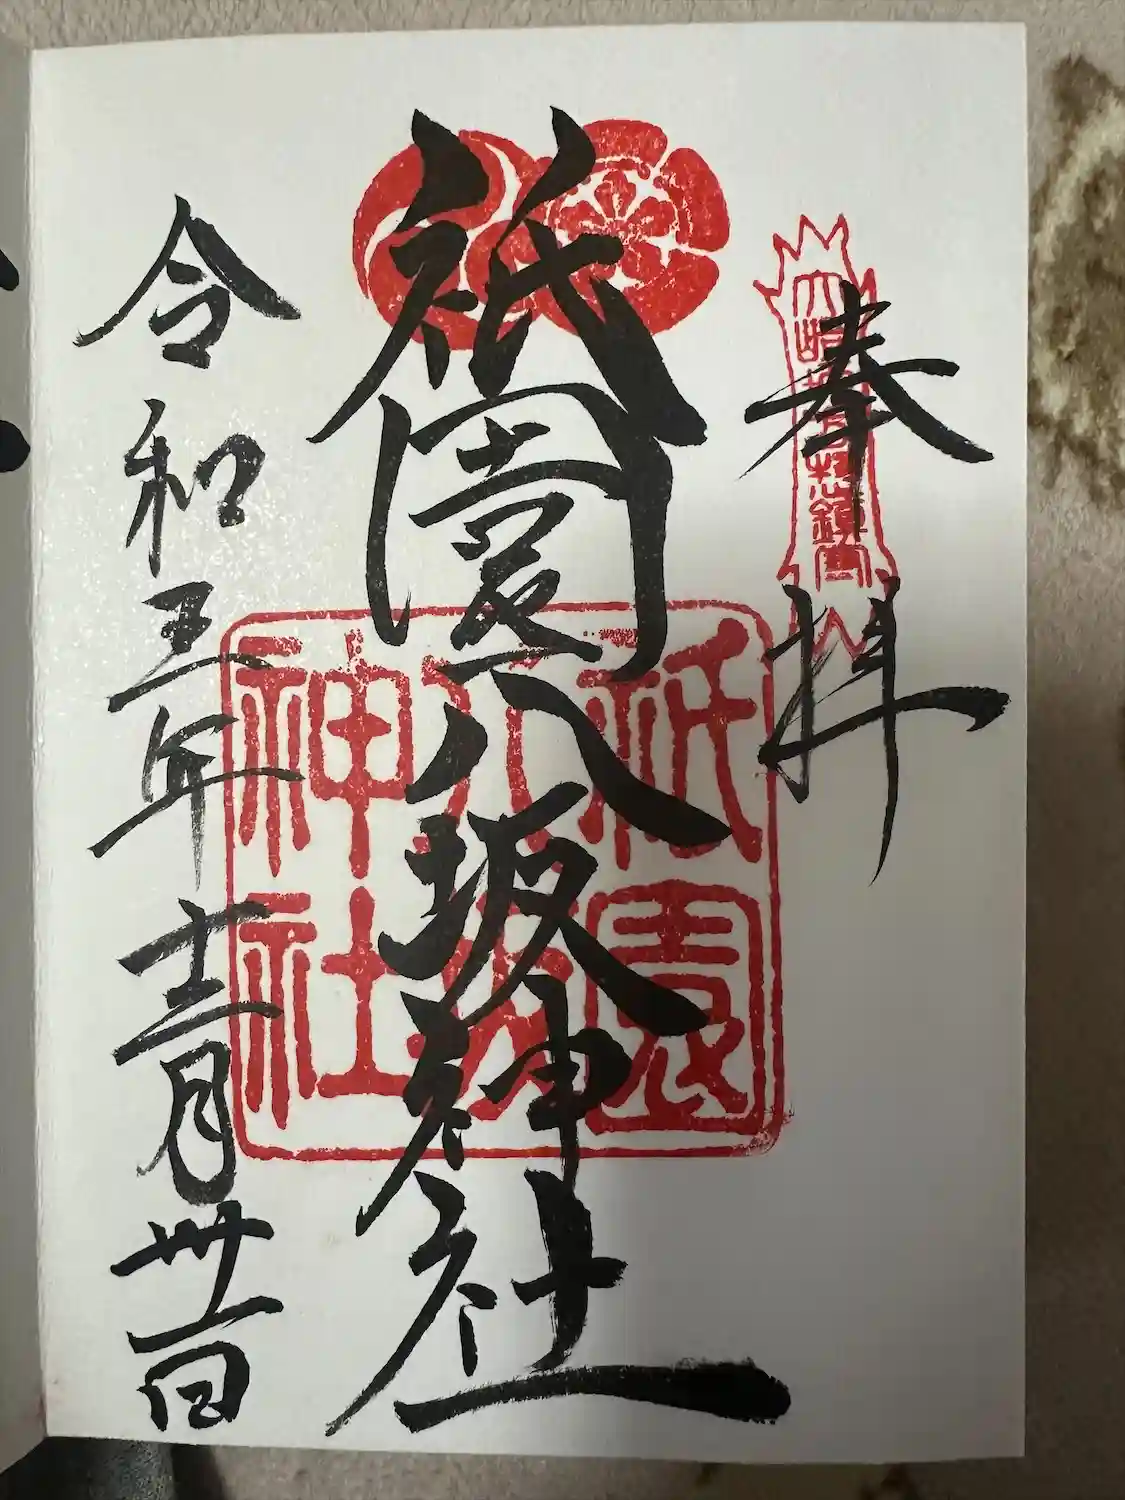 奉拝
祇園八坂神社
祇園
八坂
神社
令和五年十二月卅一日